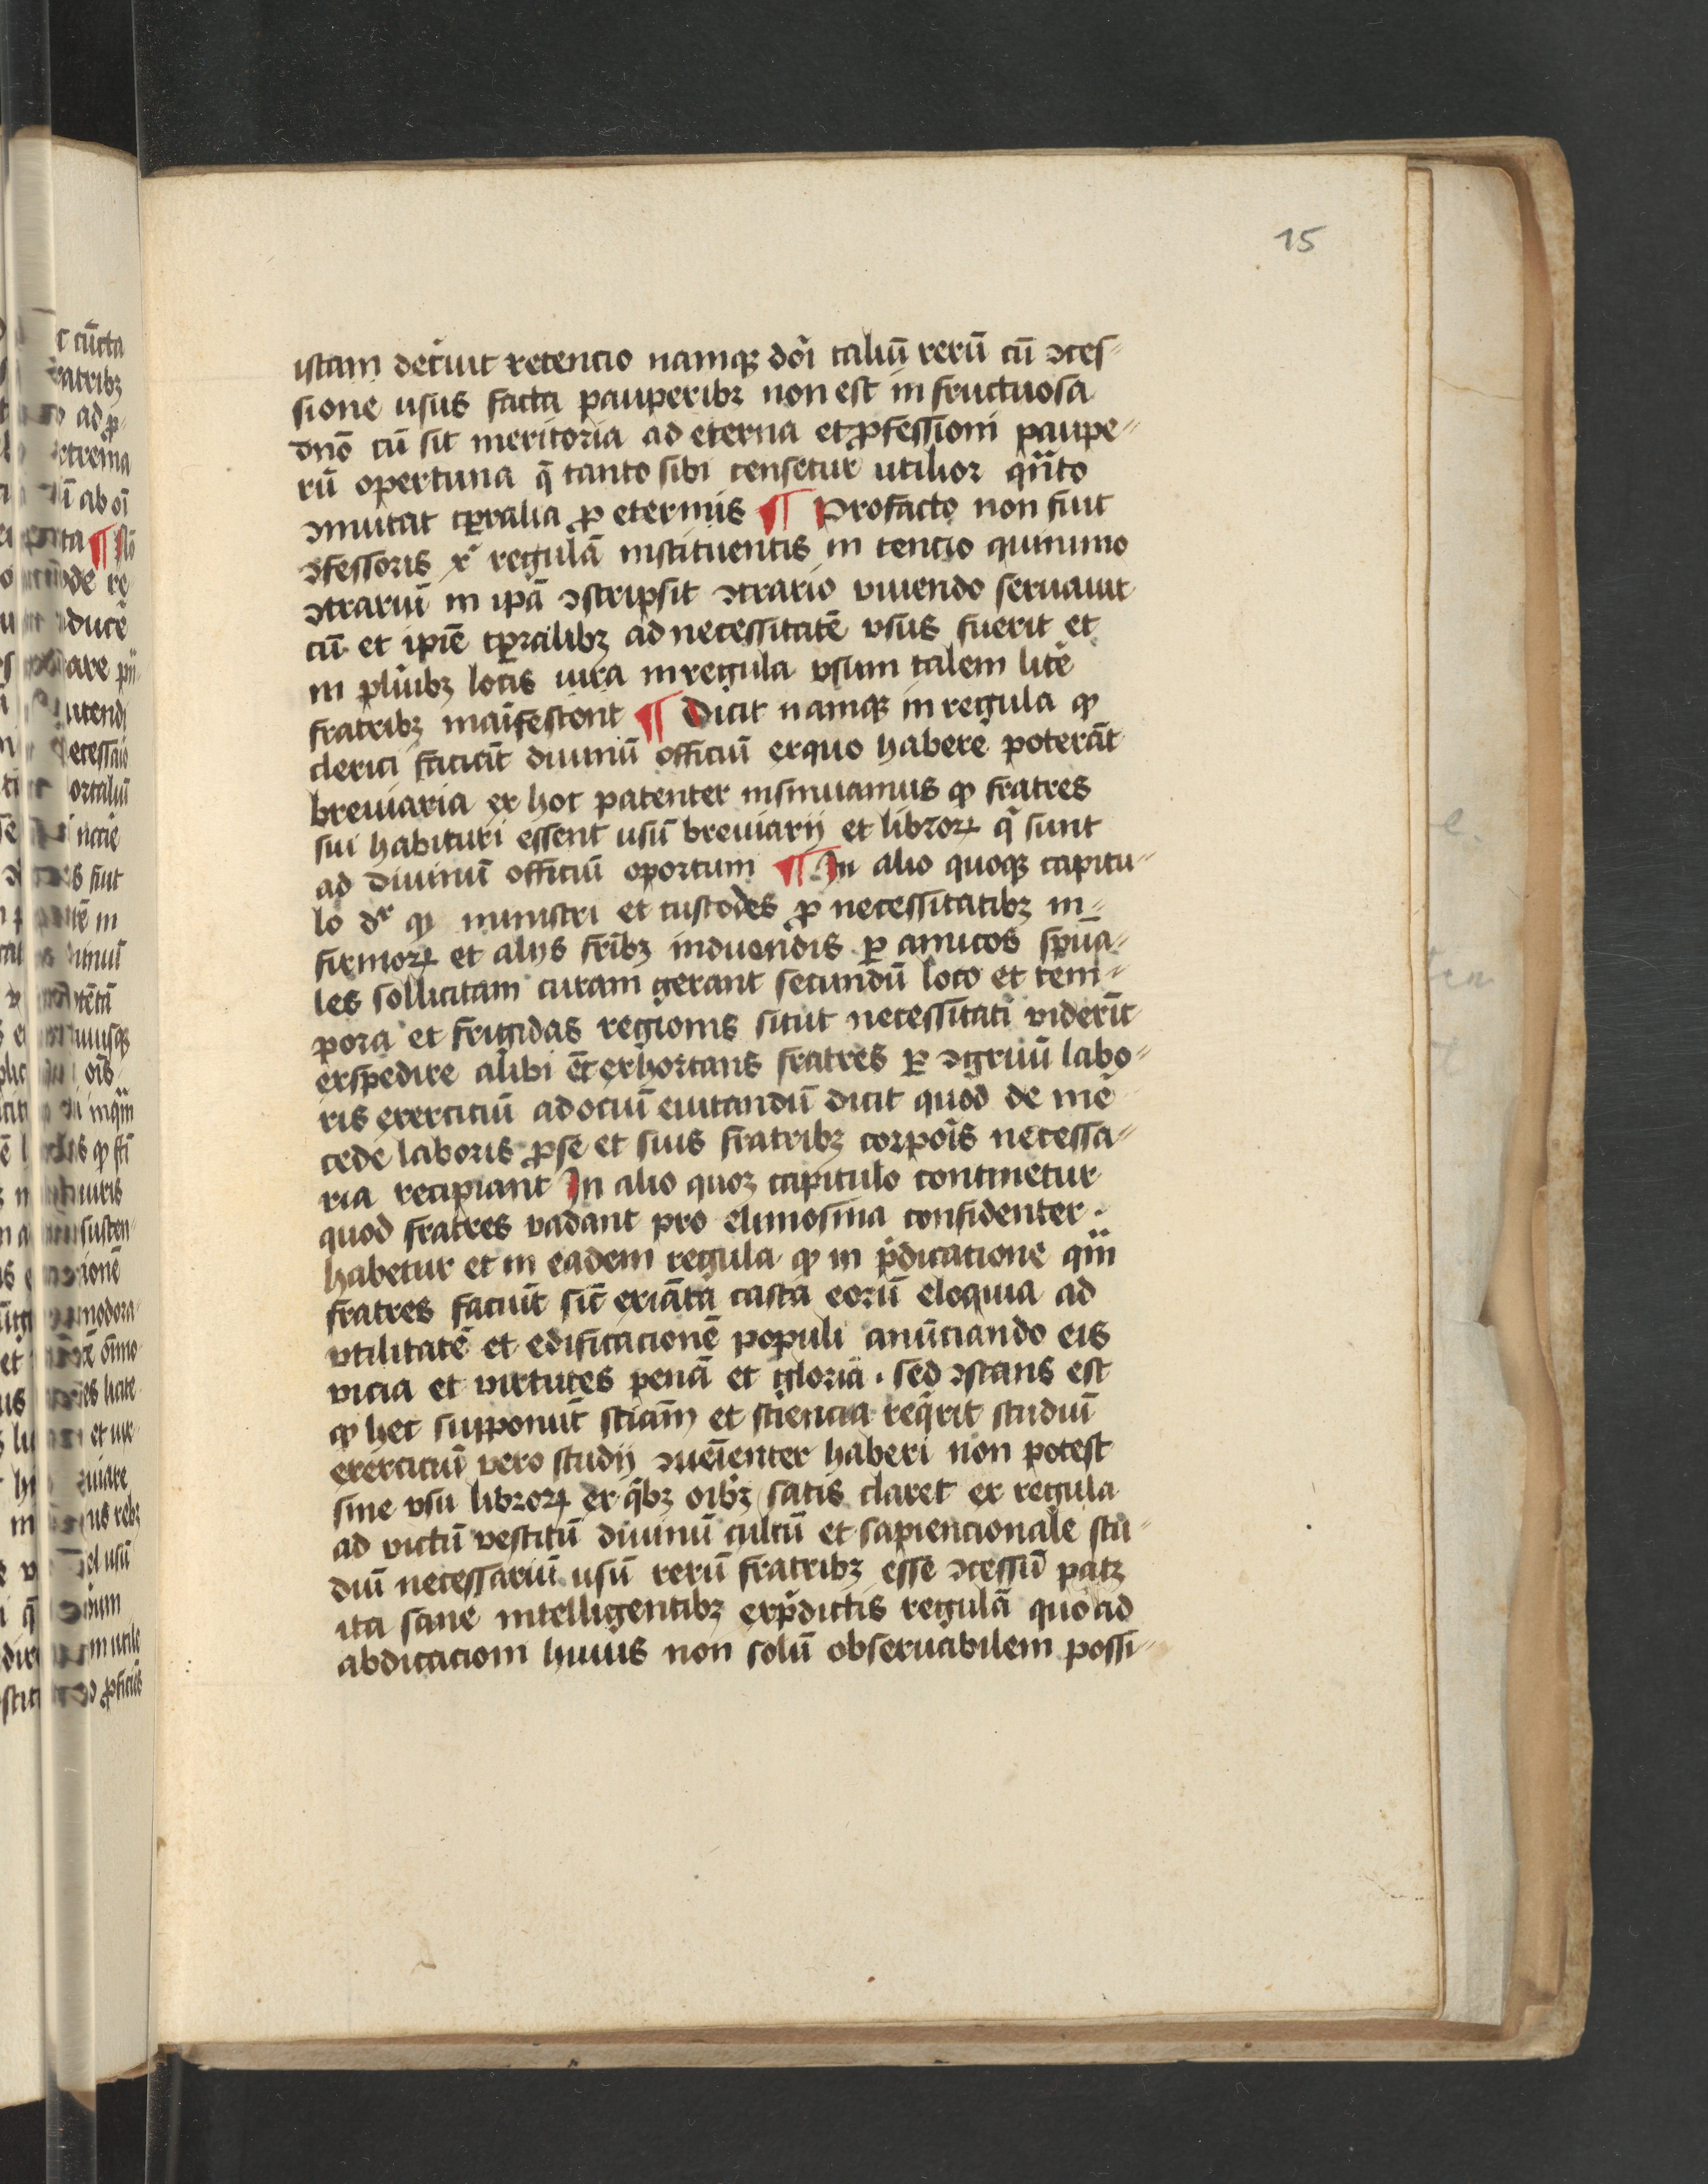 15
istam decͥuit retencio namqꝫ doı̄ taliū rerū cū ꝯces⸗
sione usus facta pauperibꝫ non est in fructuosa
dnō cū sit meritoria ad eterna et ꝓfessioni paupe⸗
rū opertuna q̄ tanto sibi censetur utilior qn̄to
ꝯmutat tꝑralia ꝓ eternis ¶ Profacto non fuit
ꝯfessoris xͬ regulā instituentis in tencio quinimo
ꝯtrariū in ipā ꝯscripsit ꝯtrario viuendo seruauit
cū et ipīe tꝑralibꝫ ad necessitatē vsus fuerit et
in plͥubꝫ locis iura in regula vsum talem litē
fratribꝫ maīfestent ¶ Dicit namqꝫ in regula ꝙ
clerici faciāt diuinū officiū ex quo habere poterāt
breuiaria ex hoc patenter insinuamus ꝙ fratres
sui habituri essent usū breuiarij et libroꝝ qͥ sunt
ad diuinū officiū oportum ¶ In alio quoqꝫ capitu⸗
lo dͬ ꝙ ministri et custodes ꝓ necessitatibꝫ in⸗
firmoꝝ et alijs frībꝫ induendis ꝑ amicos spūa⸗
les sollicitam curam gerant secundū loco et tem⸗
pora et frigidas regionis sicut necessitati viderīt
exspedire alibi ēt exhortans fratres ꝑ ꝯgruū labo⸗
ris exerciciū ad ociū euitandū dicit quod de mē
cede laboris ꝓ se et suis fratribꝫ corpoīs necessa⸗
ria recipiant In alio quoꝫ capitulo continetur
quod fratres vadant pro elimosina confidenter ·
habetur et in eadem regula ꝙ in p̄dicatione qm̄
fratres faciūt sīt exiāta casta eorū eloquia ad
vtilitatē et edificacionē populi anūciando eis
vicia et virtutes penā et gloriā · sed ꝯstans est
ꝙ hec supponūt sciām et sciencia reqͥrit studiū
exerciciū vero studij ꝯueīenter haberi non potest
sine vsu libroꝝ ex qͥbꝫ oībꝫ satis claret ex regula
ad victū vestitū diuinū cultū et sapiencionale stu⸗
diū necessariū usū rerū fratribꝫ esse ꝯcessū patꝫ
ita sane intelligentibꝫ ex p̄dictis regulā quo ad
abdicaciom huius non solū obseruabilem possi⸗